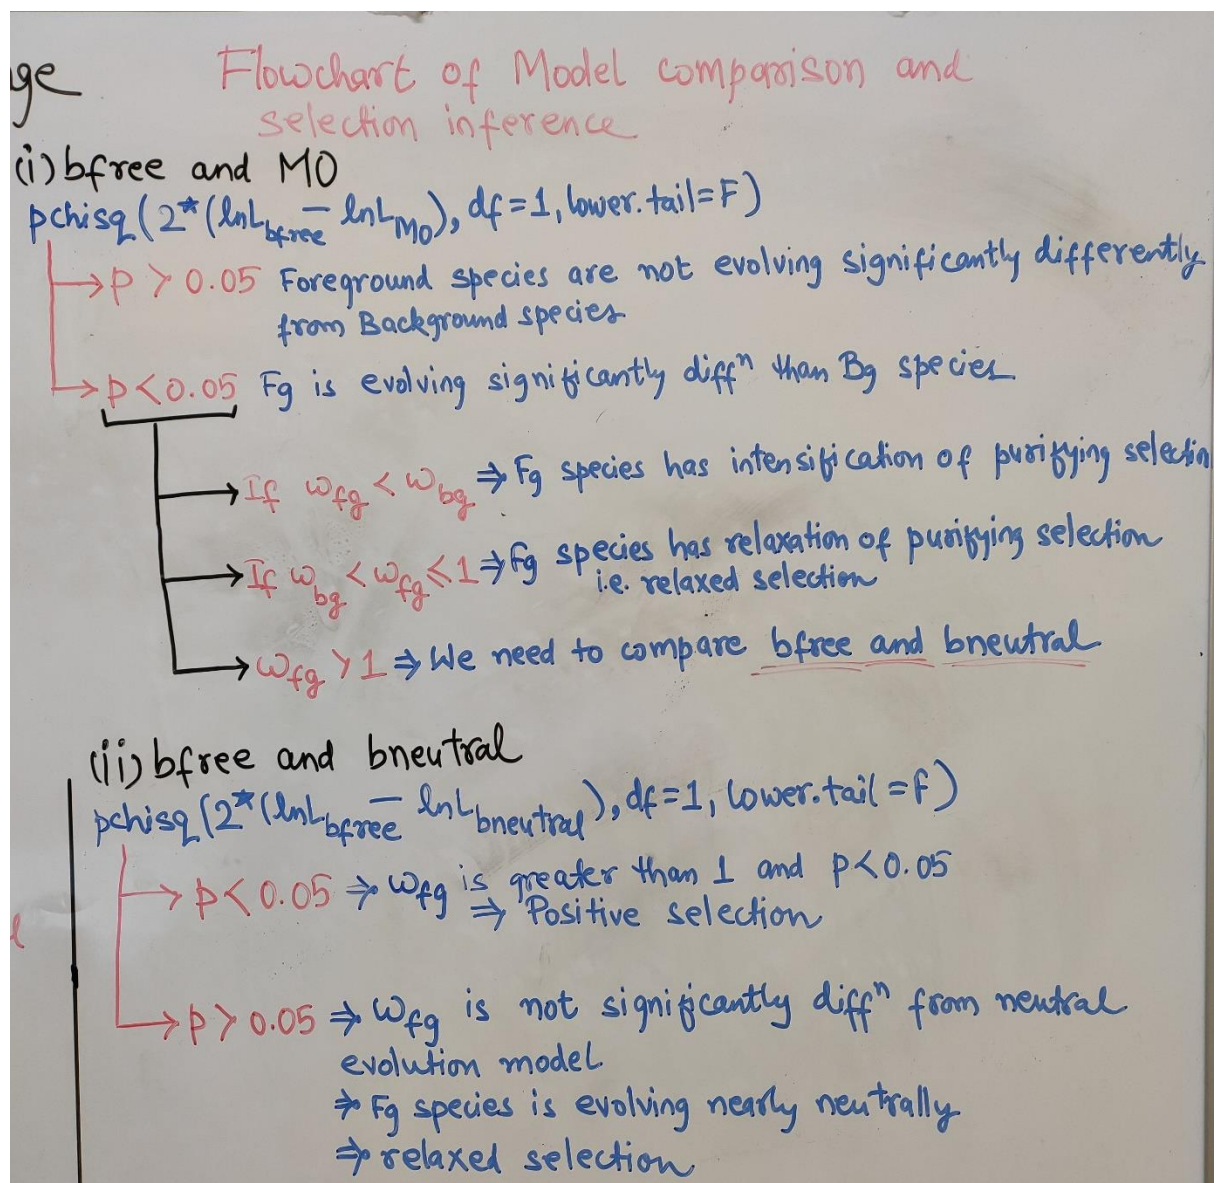 ge
Flowchart of Model comparison and
selection inference
(i) bfree and M0
pchisq(2*(lnL_bfree - lnL_M0), df=1, lower.tail=F)
→ p > 0.05 Foreground species are not evolving significantly differently
from Background species
→ p < 0.05 Fg is evolving significantly diffⁿ than Bg species
→ If ω_fg < ω_bg ⇒ Fg species has intensification of purifying selection
→ If ω_bg < ω_fg ≤ 1 ⇒ Fg species has relaxation of purifying selection
i.e. relaxed selection
→ ω_fg > 1 ⇒ We need to compare bfree and bneutral
(ii) bfree and bneutral
pchisq(2*(lnL_bfree - lnL_bneutral), df=1, lower.tail=F)
→ p < 0.05 ⇒ ω_fg is greater than 1 and p<0.05
⇒ Positive selection
→ p > 0.05 ⇒ ω_fg is not significantly diffⁿ from neutral
evolution model.
⇒ Fg species is evolving nearly neutrally
⇒ relaxed selection